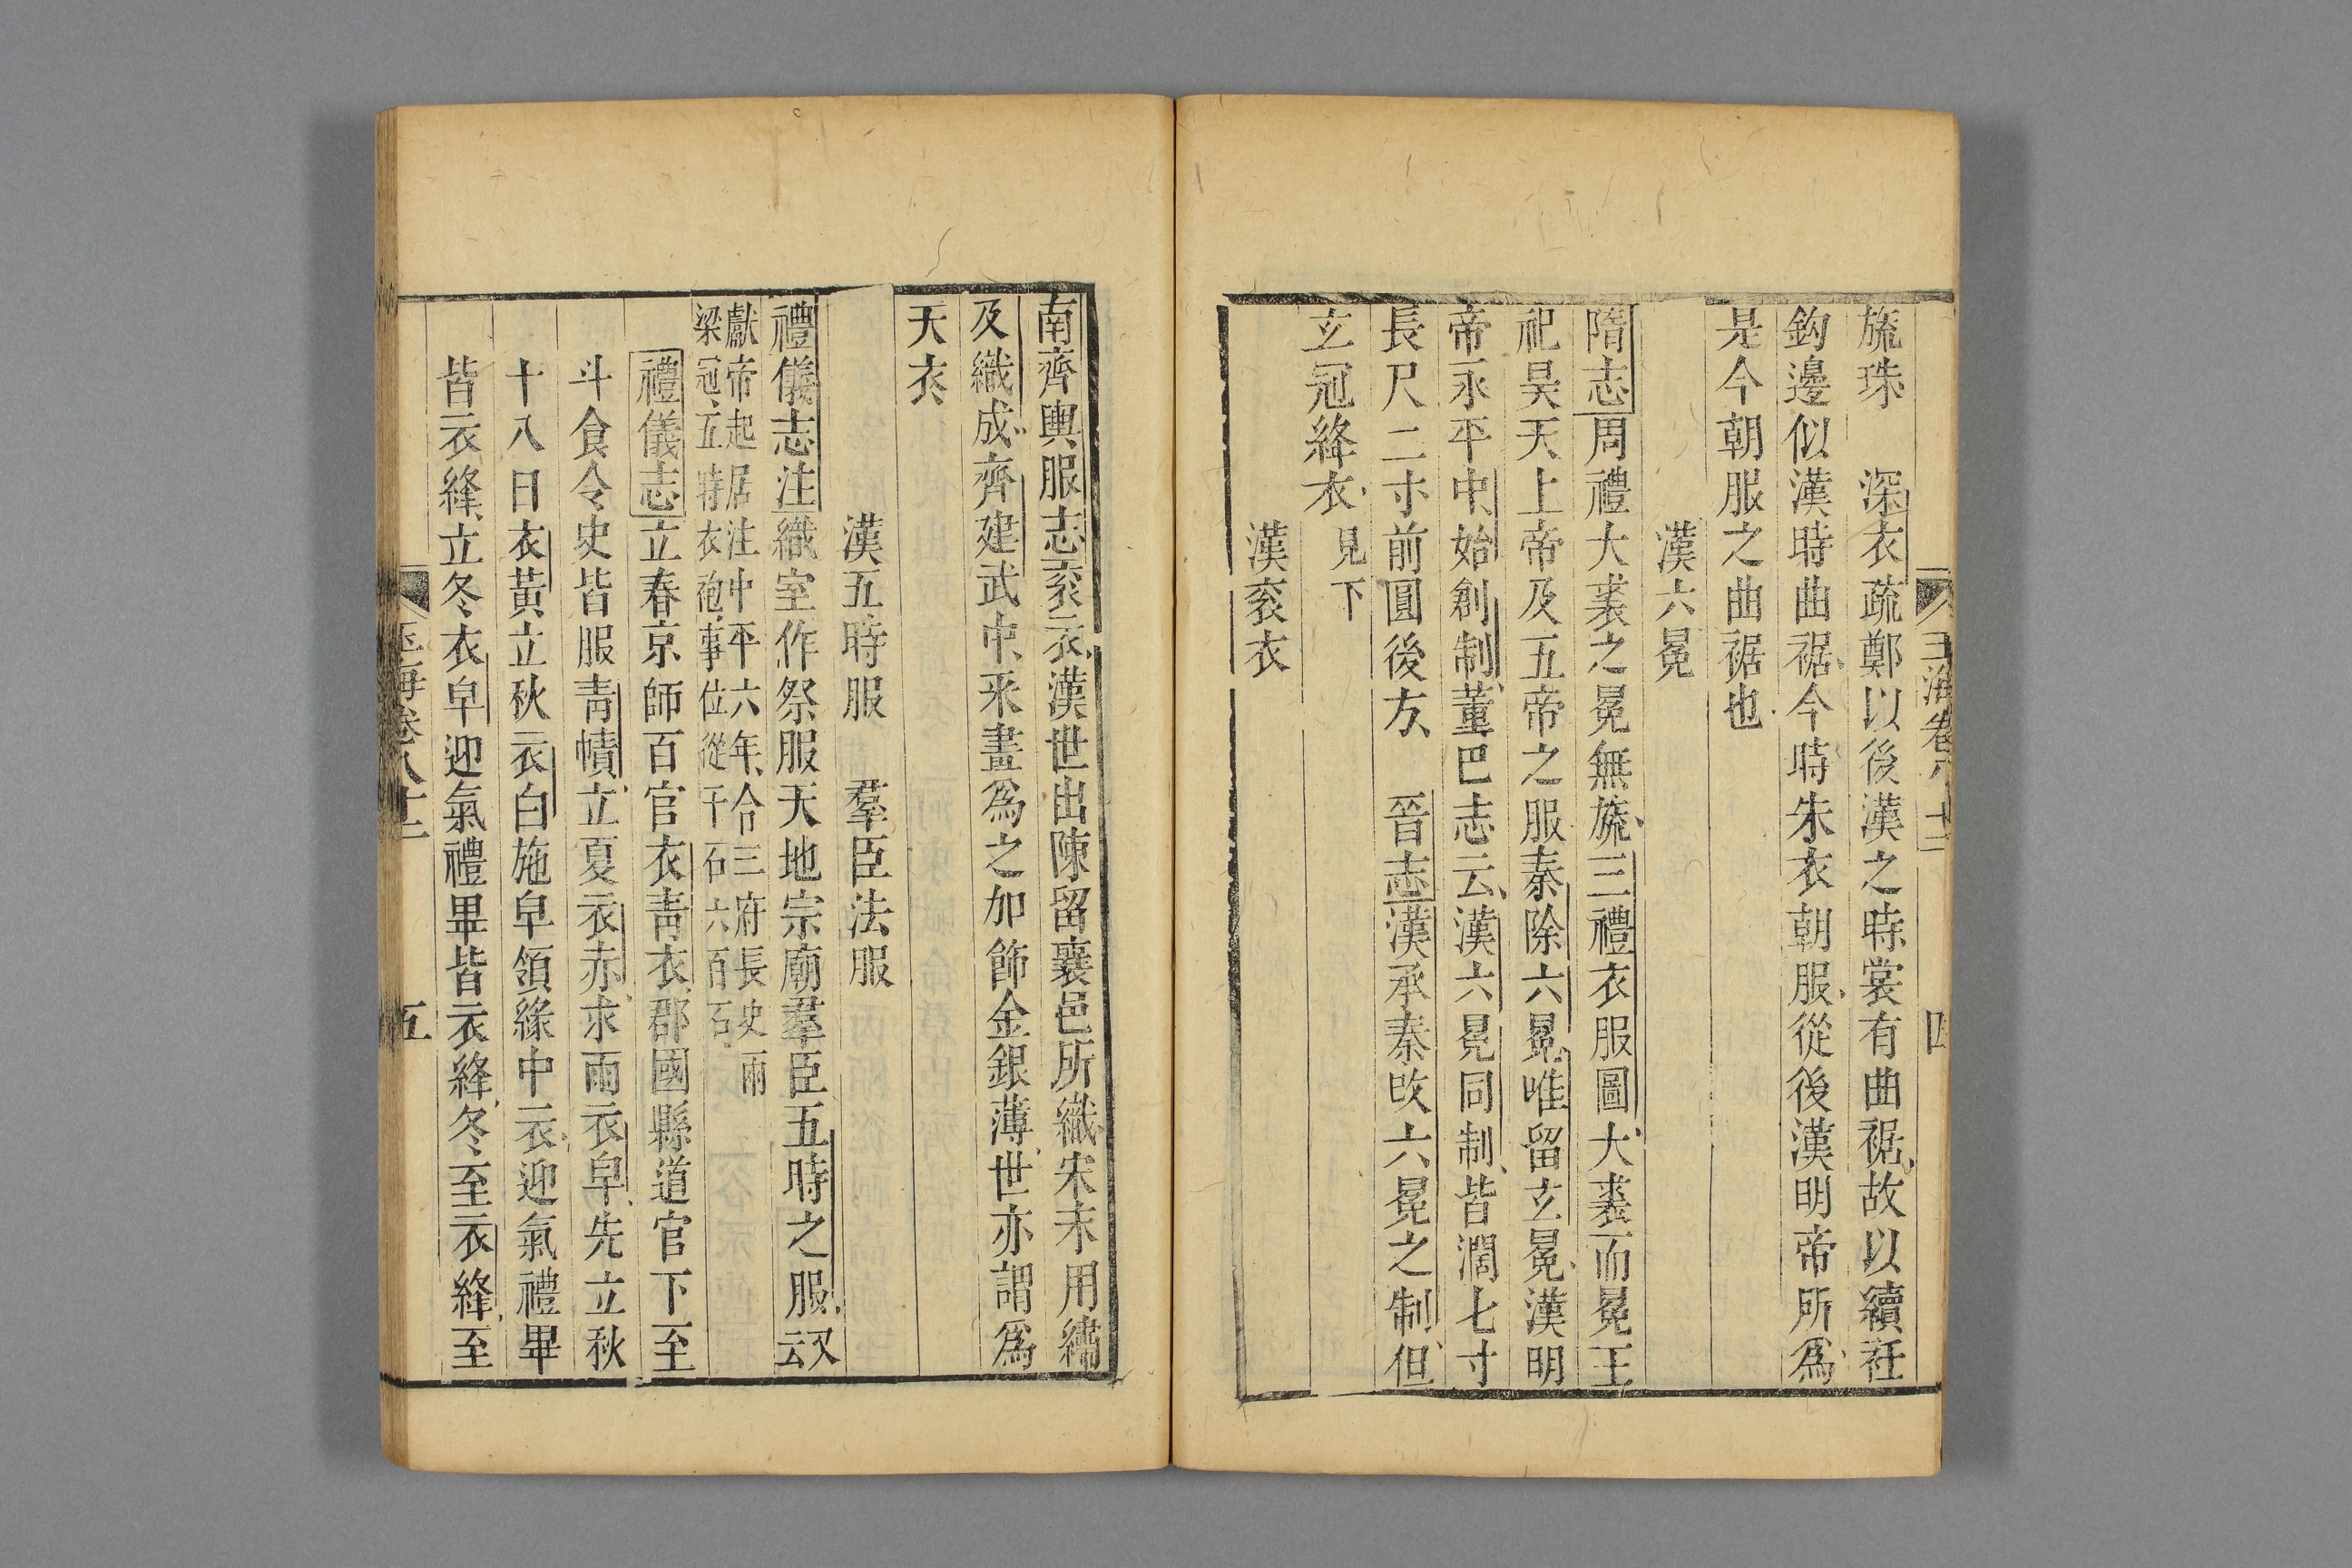 玉海卷八十二 四
旒珠 深衣疏鄭以後漢之時裳有曲裾故以續衽
鈎邊似漢時曲裾今時朱衣朝服從後漢明帝所爲
是今朝服之曲裾也
漢六冕
隋志周禮大裘之冕無旒三禮衣服圖大裘而冕王
祀昊天上帝及五帝之服秦除六冕唯留玄冕漢明
帝永平中始創制董巴志云漢六冕同制皆濶七寸
長尺二寸前圓後方 晉志漢承秦改六冕之制但
玄冠絳衣 見下
漢袞衣
南齊輿服志袞衣漢世出陳留襄邑所織宋末用繡
及織成齊建武中采畫爲之加飾金銀薄世亦謂爲
天衣
漢五時服 羣臣法服
禮儀志注織室作祭服天地宗廟羣臣五時之服又云
獻帝起居注中平六年令三府長史兩
梁冠五時衣袍事位從千石六百石
禮儀志立春京師百官衣靑衣郡國縣道官下至
斗食令史皆服靑幘立夏衣赤求雨衣皁先立秋
十八日衣黃立秋衣白施皁領緣中衣迎氣禮畢
皆衣絳立冬衣皁迎氣禮畢皆衣絳冬至衣絳至
玉海卷八十二 五